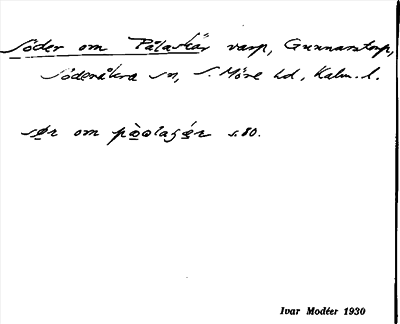 Söder om Pålaskär varp, Gunnarstorp,
Söderåkra sn, S. Möre hd, Kalm. l.
sør om pòolasǽr s.80.
Ivar Modéer 1930